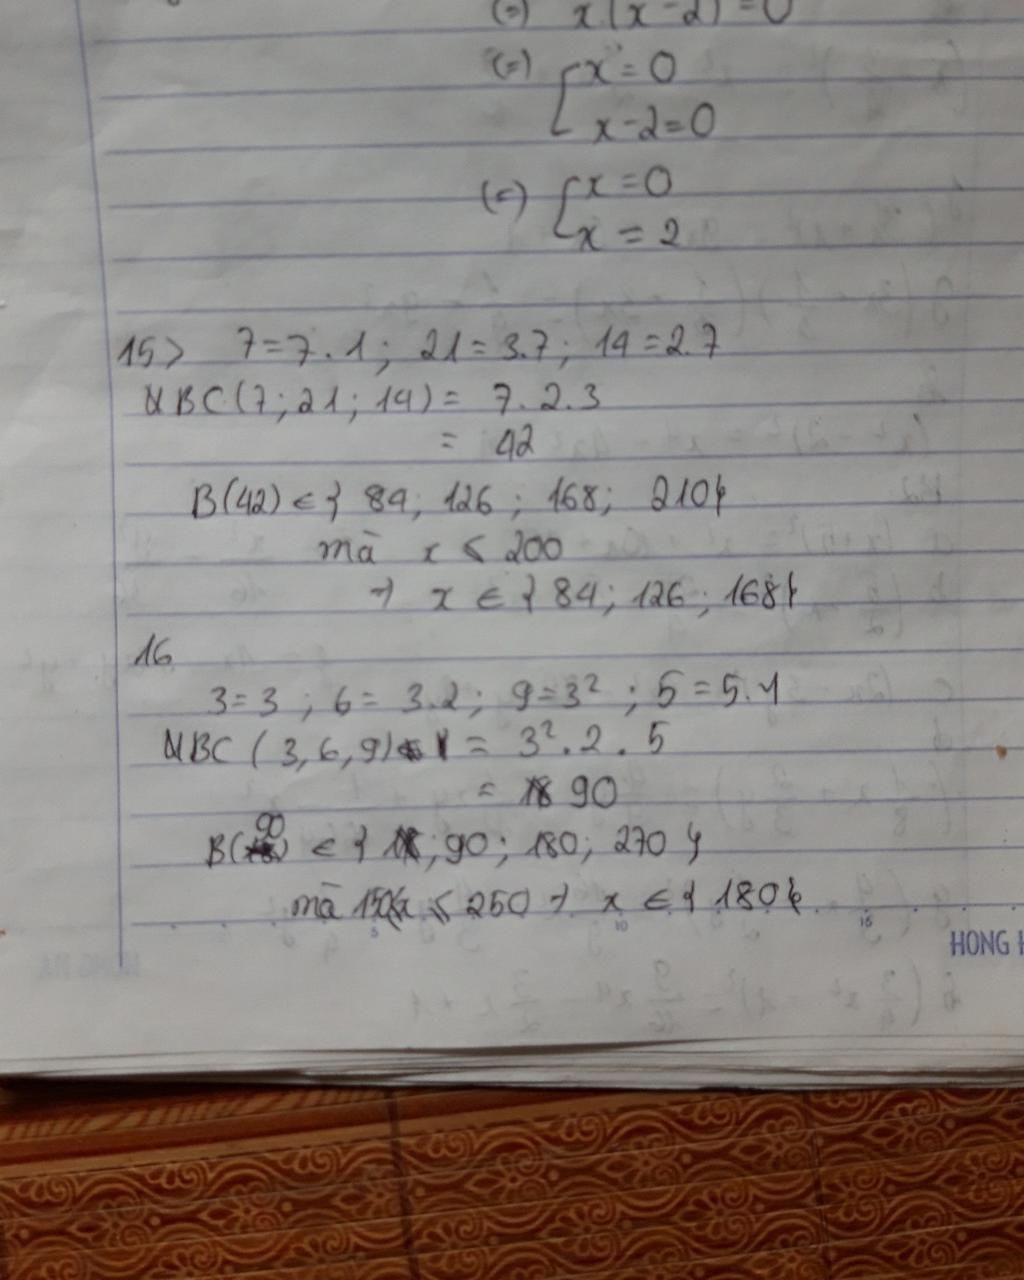 (=) x(x-2)=0
(=) [x=0
x-2=0
(=) [x=0
x=2
15> 7=7.1; 21=3.7; 14=2.7
BC(7;21;14)= 7.2.3
= 42
B(42) ∈ { 84; 126; 168; 210}
mà x < 200
→ x ∈ { 84; 126; 168}
16
3=3; 6=3.2; 9=3²; 5=5.1
BC (3,6,9) = 3².2.5
= 90
B(90) ∈ { ; 90; 180; 270 }
mà 150<x < 250 → x ∈ { 180}
5 10 15
HONG H